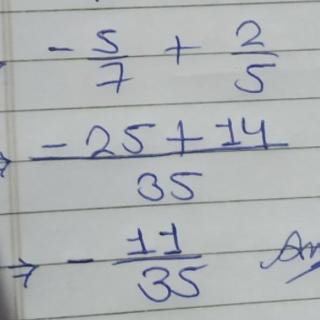 - 5/7 + 2/5
⇒ -25+14/35
⇒ - 11/35 An